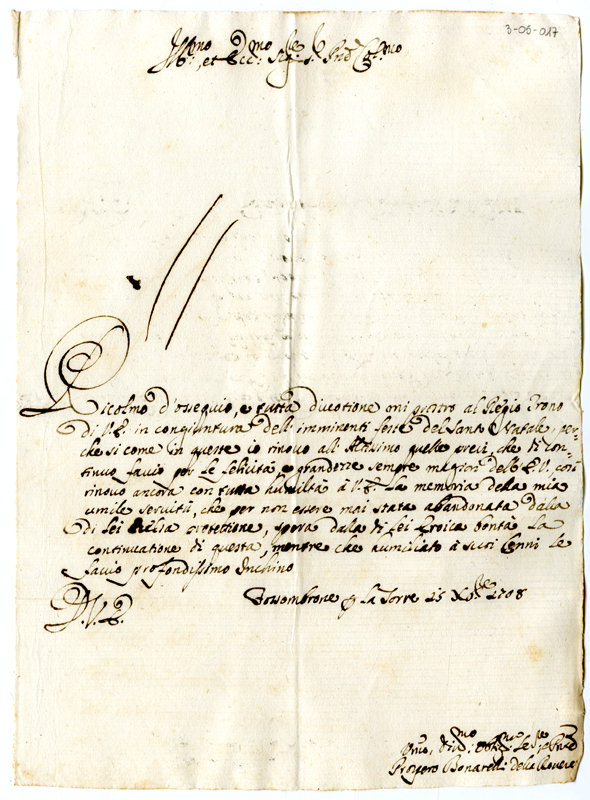 3-05-017
Ill:mo, et Ecc:mo Sig:re
Ricolmo d'ossequio, e tutta divotione mi porto al Regio Trono
di V.E. in congiuntura dell'imminenti feste del Santo Natale, per-
che si come in queste io rinovo all'Altissimo quelle preci, che di con-
tinuo faccio per le felicità, e grandezze sempre magiori dell'E.V. così
rinovo ancora con tutta humiltà à V.E. la memoria della mia
umile servitù, che per non essere mai stata abandonata dalla
di Lei protettione, spera dalla di Lei Eroica bontà la
continuatione di questa, mentre che aumiliato à suoi Cenni le
faccio profondissimo Inchino
D. V. E.
Fossombrone la Torre 15 Xbre 1708
Prospero Bonarelli della Rovere